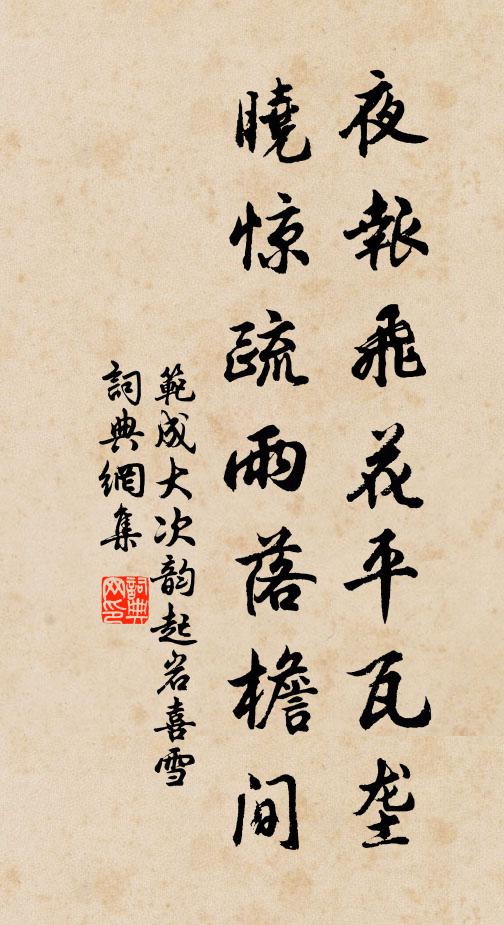 夜報飛花平瓦垄
曉惊疏雨落檐間
範成大次韵起岩喜雪
詞典網集
詞典网印